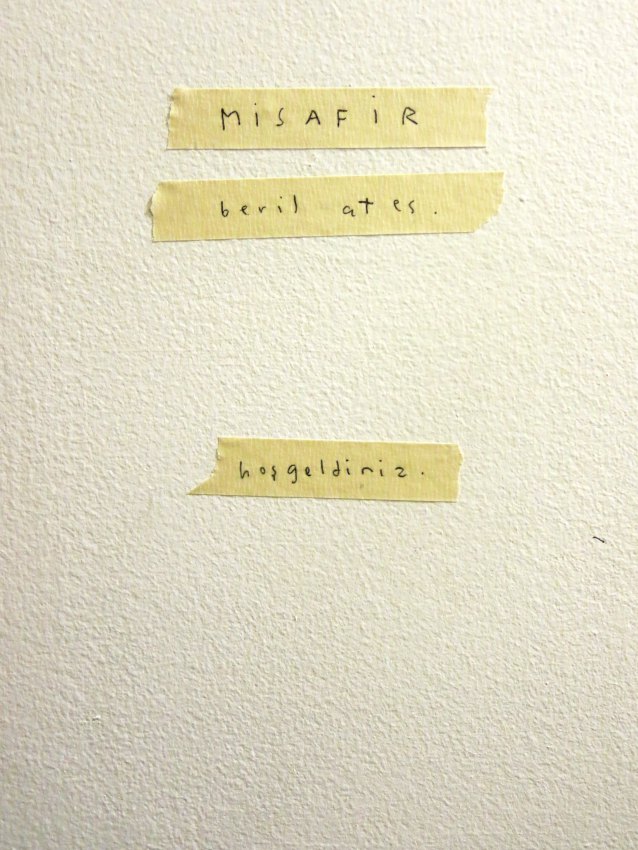 MiSAFiR
beril ates.
hoşgeldiniz.